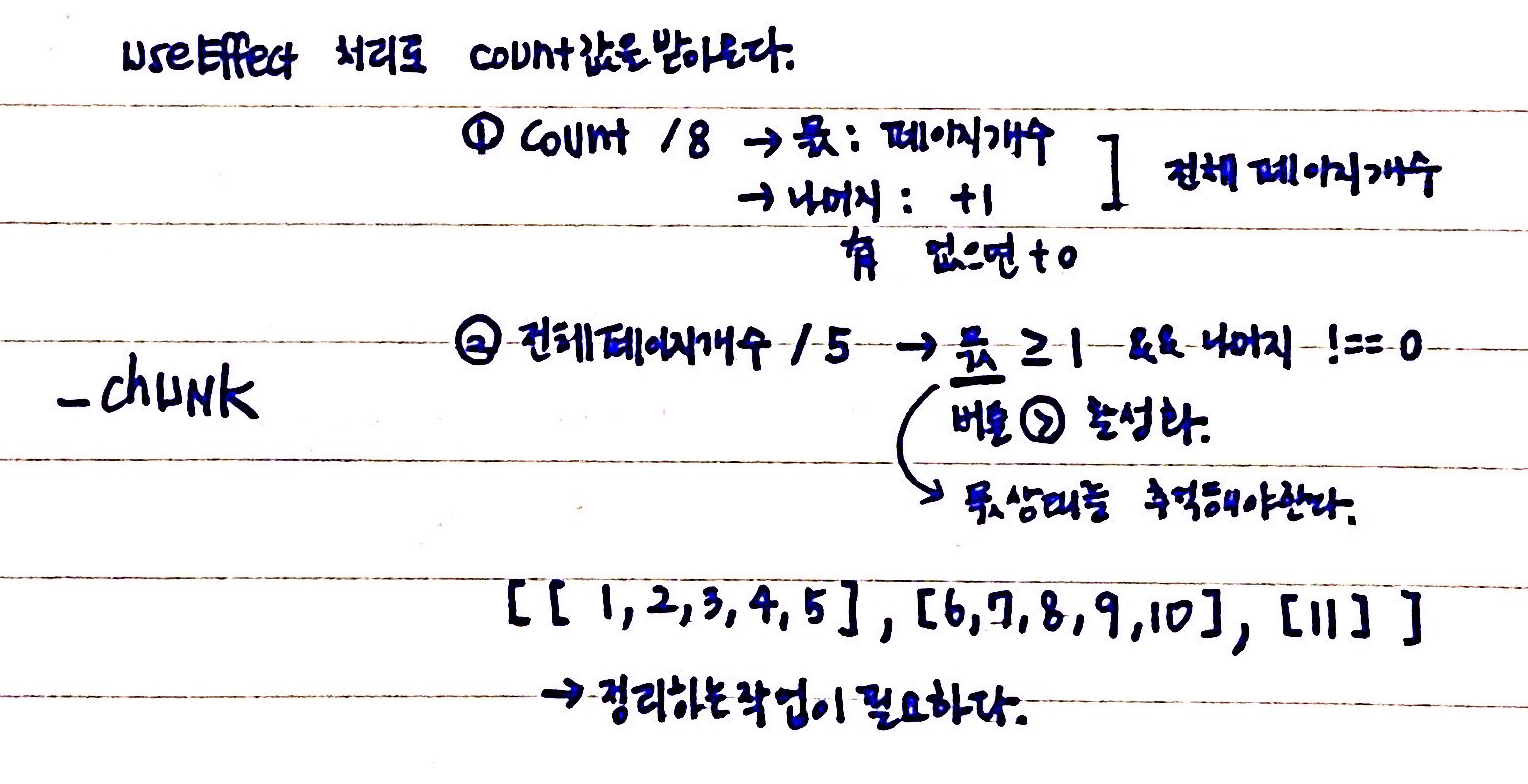 useEffect 처리로 count값을 받아온다.
① Count / 8 → 몫 : 페이지개수 ] 전체 페이지개수
→ 나머지 : +1
有 없으면 +0
② 전체페이지개수 / 5 → 몫 ≥ 1 && 나머지 !== 0
_chUNK
버튼 > 활성화.
몫상태를 추적해야한다.
[ [ 1, 2, 3, 4, 5 ] , [6, 7, 8, 9, 10], [11] ]
→ 정리하는작업이 필요하다.